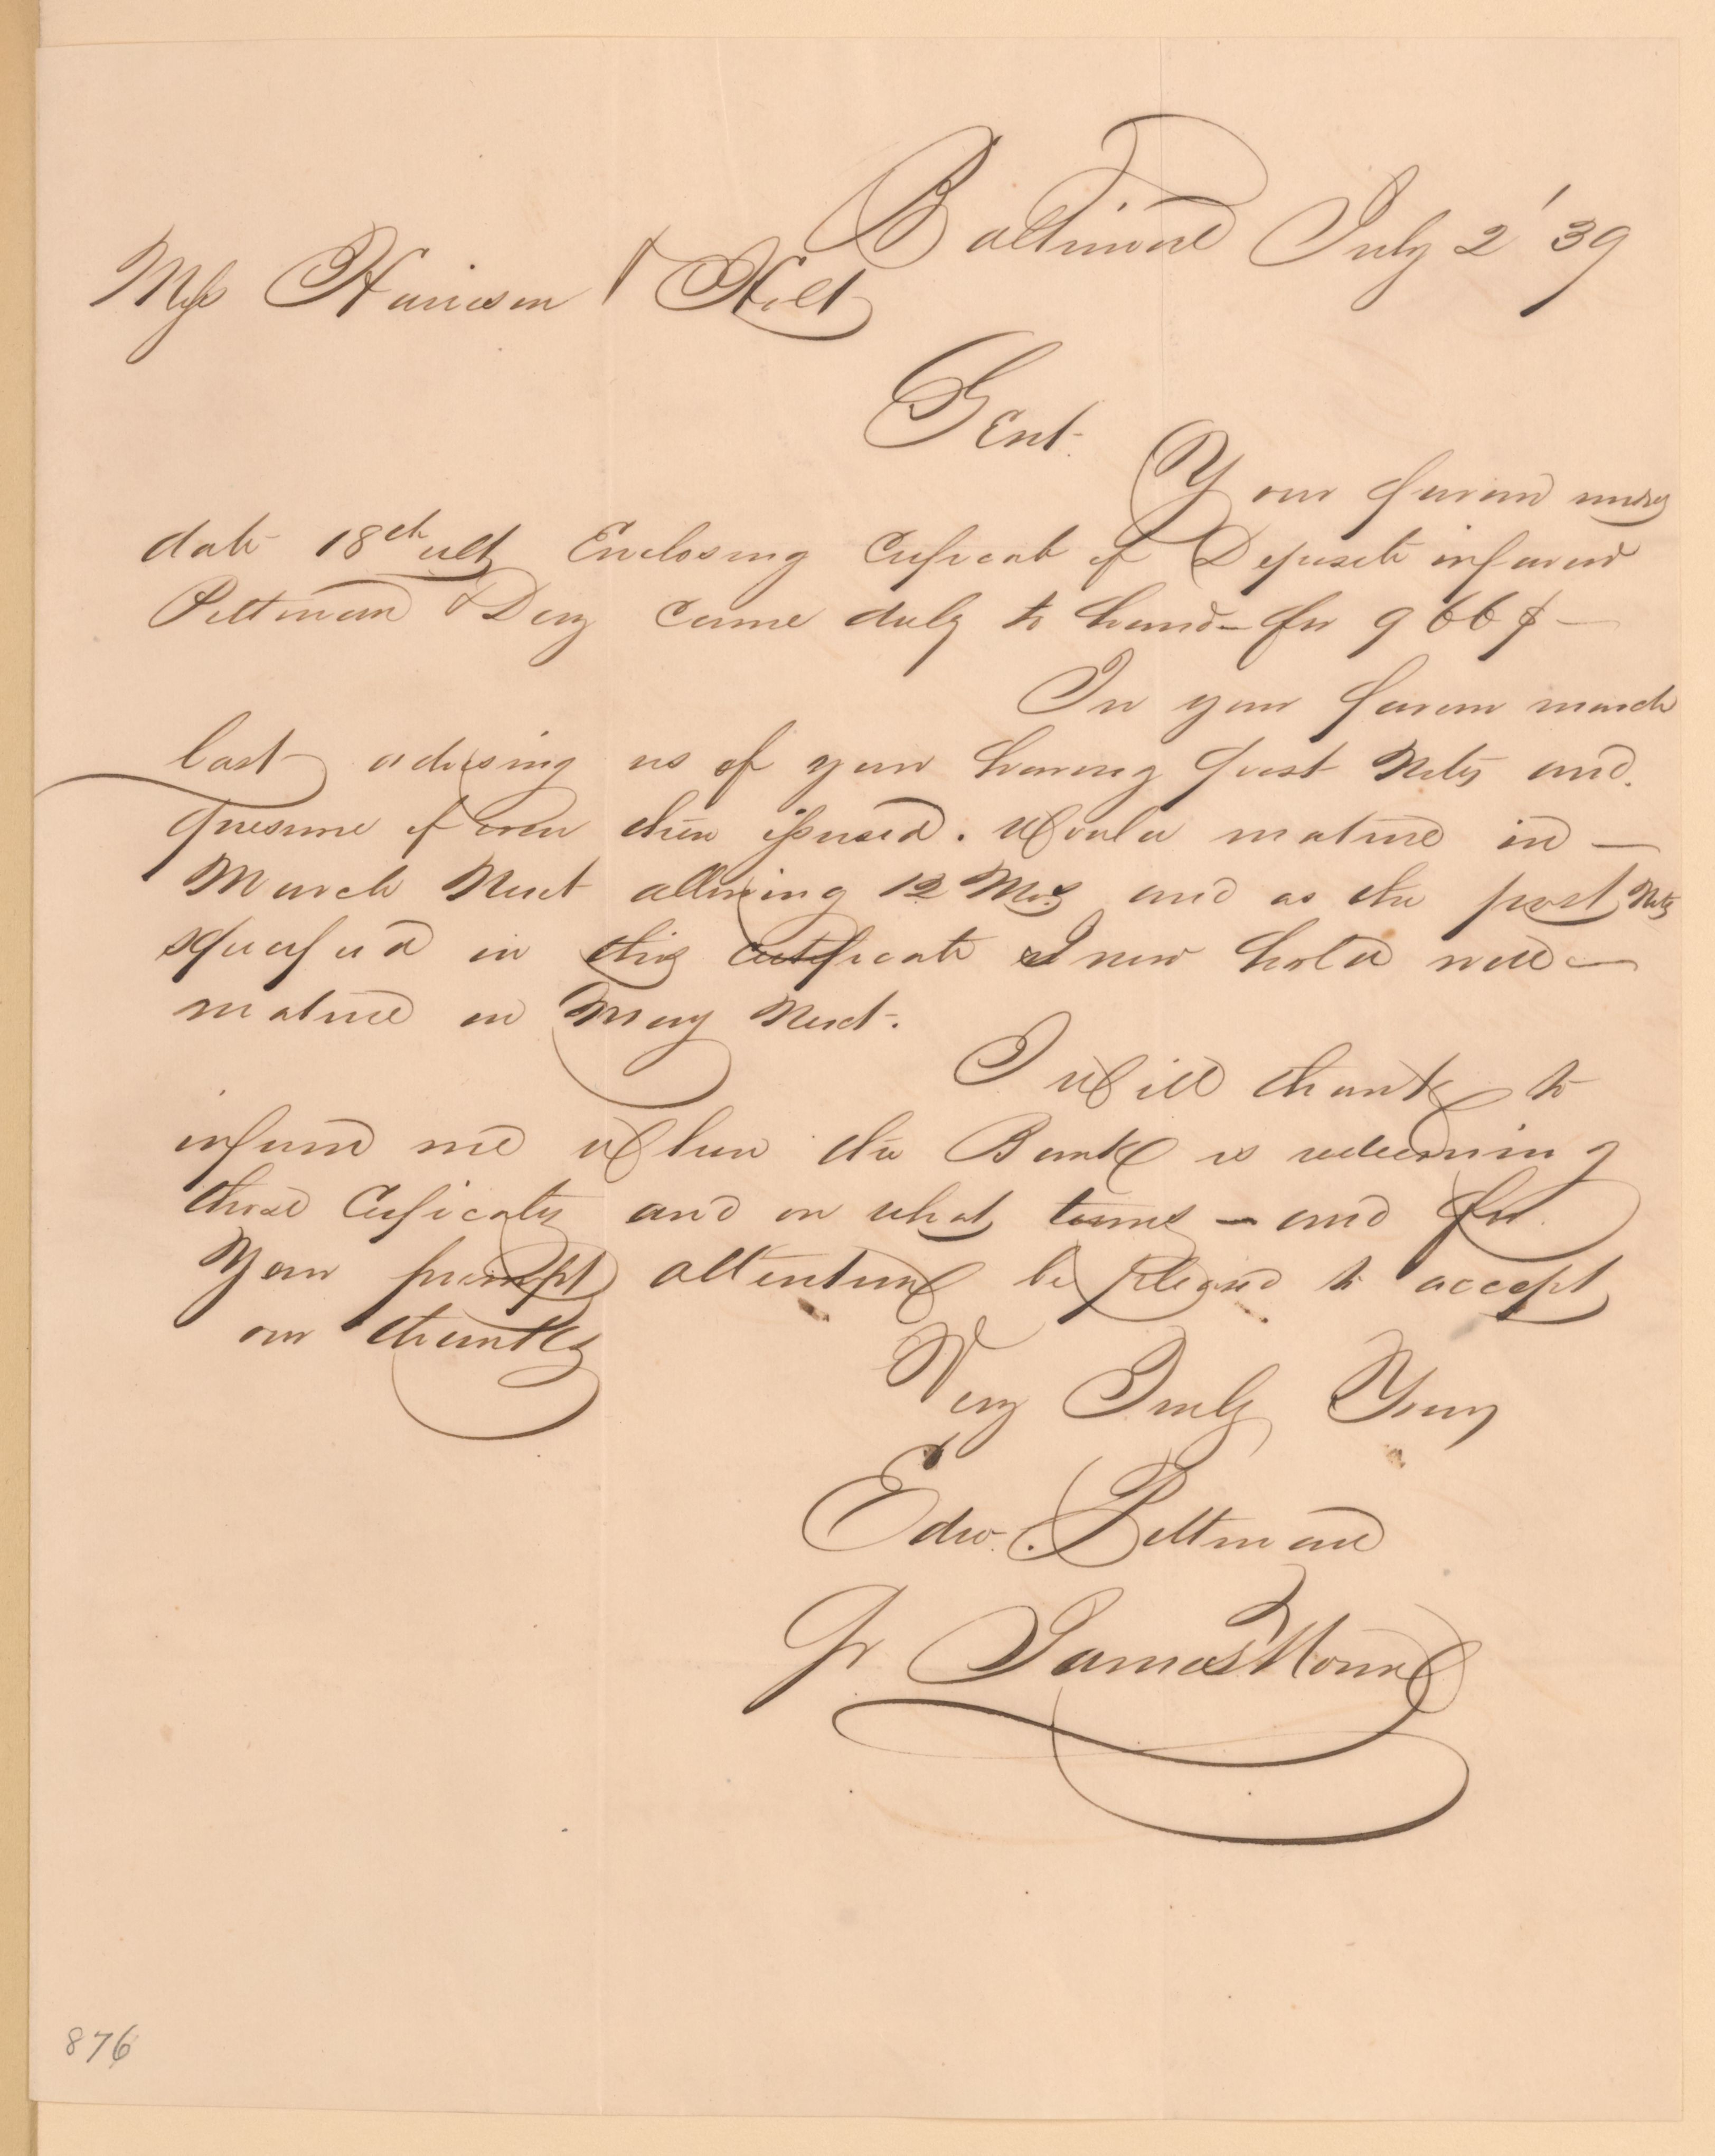 Baltimore July 2' 39
Mess Harrison & Holt
Gent.
Your favour under
date 18th ult Enclosing Cerficat of Deposite in favour
Pittman & Dey came duly to hand - for 966$ —
In your favour march
last advising us of your having post Notes and.
presume if even then issued. Would mature in —
March Next allowing 12 Mos and as the post Notes
specified in this certificate I now hold will —
mature in May Next.
I Will thank to
inform me When the Bank is redeeming
those Cerficates and on what terms — and for
Your prompt attention be pleased to accept
our thanks
Very Truly Yours
Edw. Pittman
Pr James
876